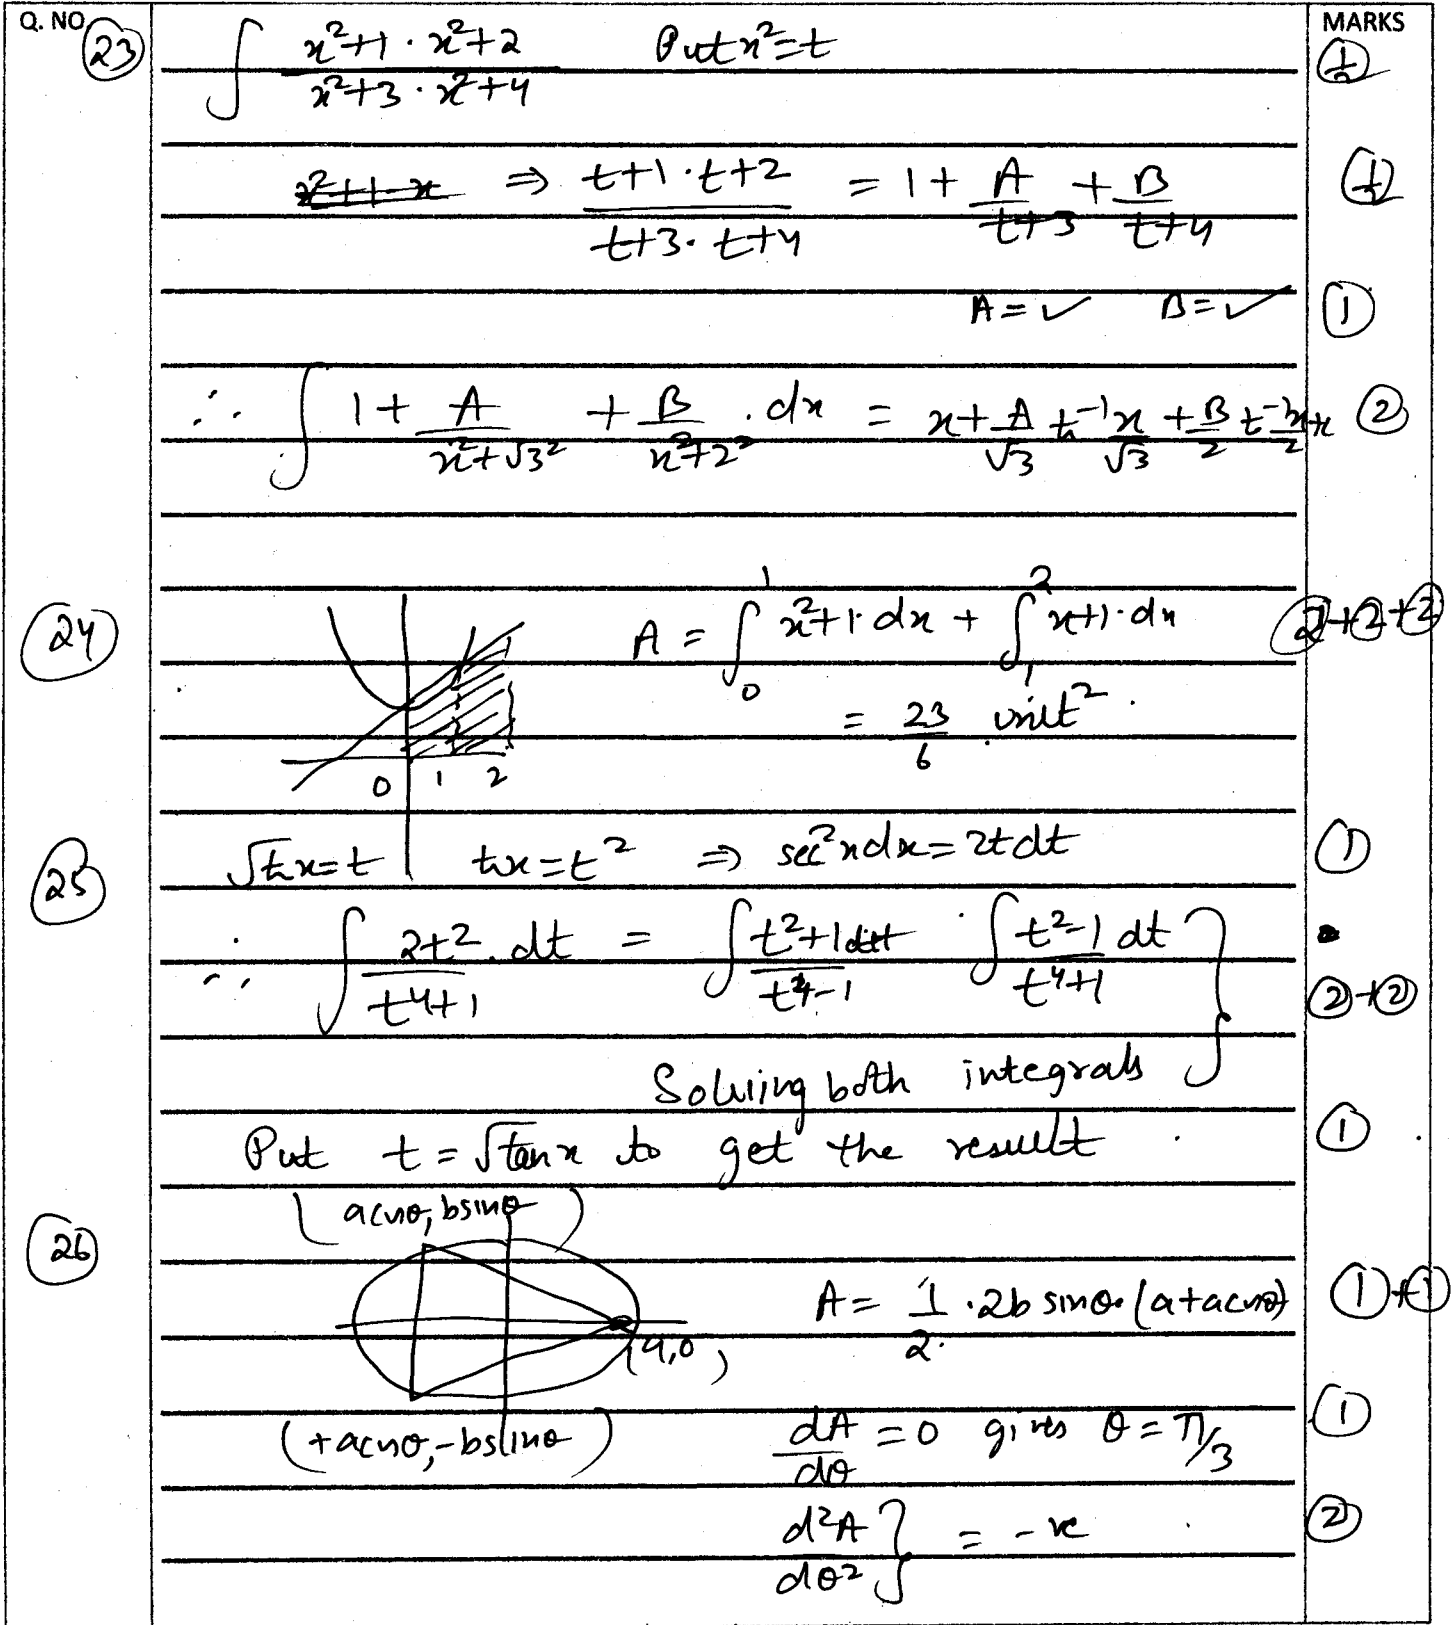 Q. NO. MARKS
(23) ∫ x²+1 · x²+2 / x²+3 · x²+4 Put x²=t (½)
⇒ t+1 · t+2 / t+3 · t+4 = 1 + A/t+3 + B/t+4 (½)
A = ✓ B = ✓ (1)
∴ ∫ 1 + A/x²+√3² + B/x²+2² . dx = x + A/√3 t⁻¹ x/√3 + B/2 t⁻¹ x/2 + (2)
(24) A = ∫₀¹ x²+1 · dx + ∫₁² x+1 · dx (2)+(2)+(2)
= 23/6 unit²
0 1 2
(25) √tx = t tx = t² ⇒ sec²x dx = 2t dt (1)
∴ ∫ 2t²/t⁴+1 . dt = ∫ t²+1 dt/t⁴-1 ∫ t²-1 dt/t⁴+1 } (2)+(2)
Solving both integrals
Put t = √tan x to get the result (1)
(26) (a cos θ, b sin θ)
A = 1/2 · 2b sin θ · (a + a cos θ) (1)+(1)
(a,0)
(+a cos θ, -b sin θ) dA/dθ = 0 gives θ = π/3 (1)
d²A/dθ² } = -ve (2)